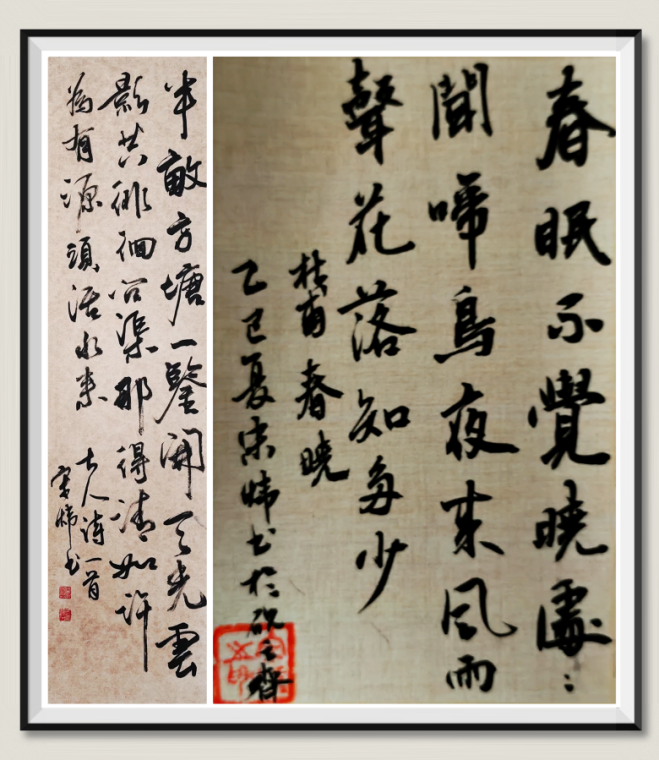 春眠不覺曉處:
聞啼鳥夜来風雨
聲花落知多少
杜甫春曉
乙巳夏宋炜书於砚之齋
半畝方塘一鑒開天光雲
影共徘徊问渠那得清如許
為有源頭活水来
古人诗一首
宋炜书